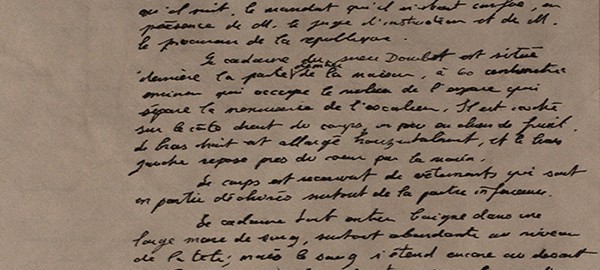 qu'il suit, le mandat qu'il m'avait confié, en
présence de M. le juge d'instruction et de M.
le procureur de la république.
Le cadavre du sieur Doubot est situé
derrière la porte de la maison, à 60 centimètres
environ qui occupe le milieu de l'espace qui
sépare la menuiserie de l'escalier. Il est couché
sur le côté droit du corps, un peu en chien de fusil.
Le bras droit est allongé horizontalement, et le bras
gauche repose près du coeur par la main.
Le corps est recouvert de vêtements qui sont
en partie déchirés surtout de la partie inférieure.
Le cadavre tout entier baigne dans une
large mare de sang, surtout abondante au niveau
de la tête; mais le sang s'étend encore au devant